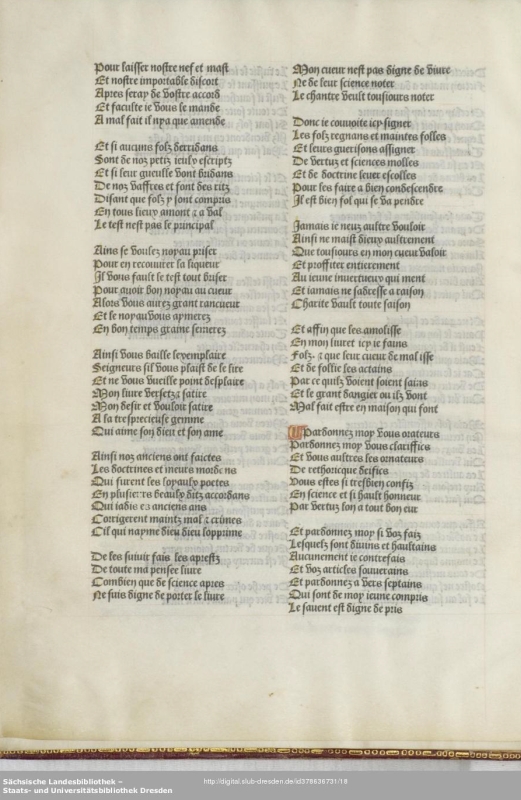 Pour laisser nostre nef et mast
Et nostre importable discort
Apres seray de vostre accord
Et faculte ie vous le mande
A mal fait il nya que amende
Et si aucuns folz derridans
Sont de noz petiz ieulx escriptz
Et si leur gueulle vont bridans
De noz vaffres et font des ritz
Disant que folz y sont compris
En tous lieux amont ⁊ a val
Le test nest pas le principal
Ains se voulez noyau priser
Pour en recouurer la liqueur
Il vous fault le test tout briser
Pour auoir bon noyau au cueur
Alors vous aurez grant rancueur
Et le noyau vous aymerez
En bon temps graine semerez
Ainsi vous baille lexemplaire
Seigneurs sil vous plaist de le lire
Et ne vous vueille point desplaire
Mon liure versetz ⁊ satire
Mon desir et vouloir satire
A la trespecieuse gemme
Qui aime son dieu et son ame
Ainsi noz anciens ont faictes
Les doctrines et meurs mordens
Qui furent les loyaulx poetes
En plusieurs beaulx ditz accordans
Qui iadis es anciens ans
Corrigerent maintz mal ⁊ crimes
Cil qui nayme dieu dieu lopprime
De les suiuir fais les aprestz
De toute ma pensee liure
Combien que de science apres
Ne suis digne de porter le liure
Mon cueur nest pas digne de viure
Ne de leur science noter
Le chantre veult tousiours noter
Donc ie couuoite icy signer
Les folz regnans et maintes folles
Et leurs guerisons assigner
De vertuz et sciences molles
Et de doctrine leuer escolles
Pour les faire a bien condescendre
Il est bien fol qui se va pendre
Jamais ie neuz aultre vouloir
Ainsi ne maist dieux aultrement
Que tousiours en mon cueur valoir
Et proffiter entierement
Au ieune inuertueux qui ment
Et iamais ne sadresse a raison
Charite vault toute saison
Et affin que les amolisse
En mon liuret icy ie fains
Folz. ⁊ que leur cueur de mal isse
Et de follie les actains
Par ce quilz voient soient sains
Et le grant dangier ou ilz vont
Mal fait estre en maison qui font
Pardonnez moy vous orateurs
Pardonnez moy vous clariffics
Et vous aultres les ornateurs
De rethoricque deifics
Vous estes si tresbien confiz
En science et si hault honneur
Par vertuz lon a tout bon eur
Et pardonnez moy si voz faiz
Lesquelz sont diuins et haultains
Aucunement ie contrefais
Et voz articles souuerains
Et pardonnez a vers septains
Qui sont de moy ieune compris
Le sauent est digne de pris
Sächsische Landesbibliothek –
Staats- und Universitätsbibliothek Dresden
http://digital.slub-dresden.de/id378636731/18